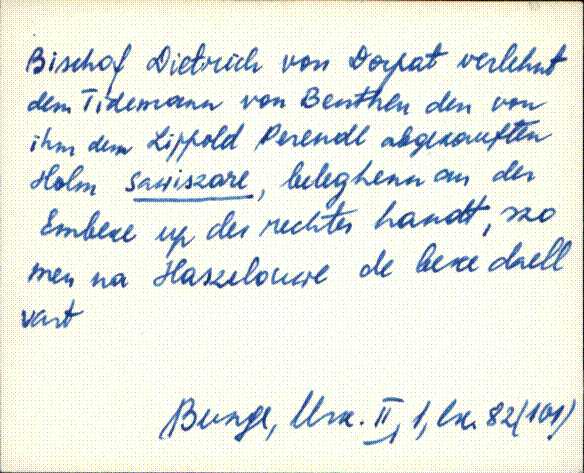 Bischof Dietrich von Dorpat verlehnt
dem Tidemann von Benthen den von
ihm dem Lippold Perendl abgekauften
Holm Sawiszare, beleghenn an der
Embeke up der rechter handt, szo
men na Haszelouwe de beke daell
vart
Bunge, Urk. II, 1, lk. 82(101)